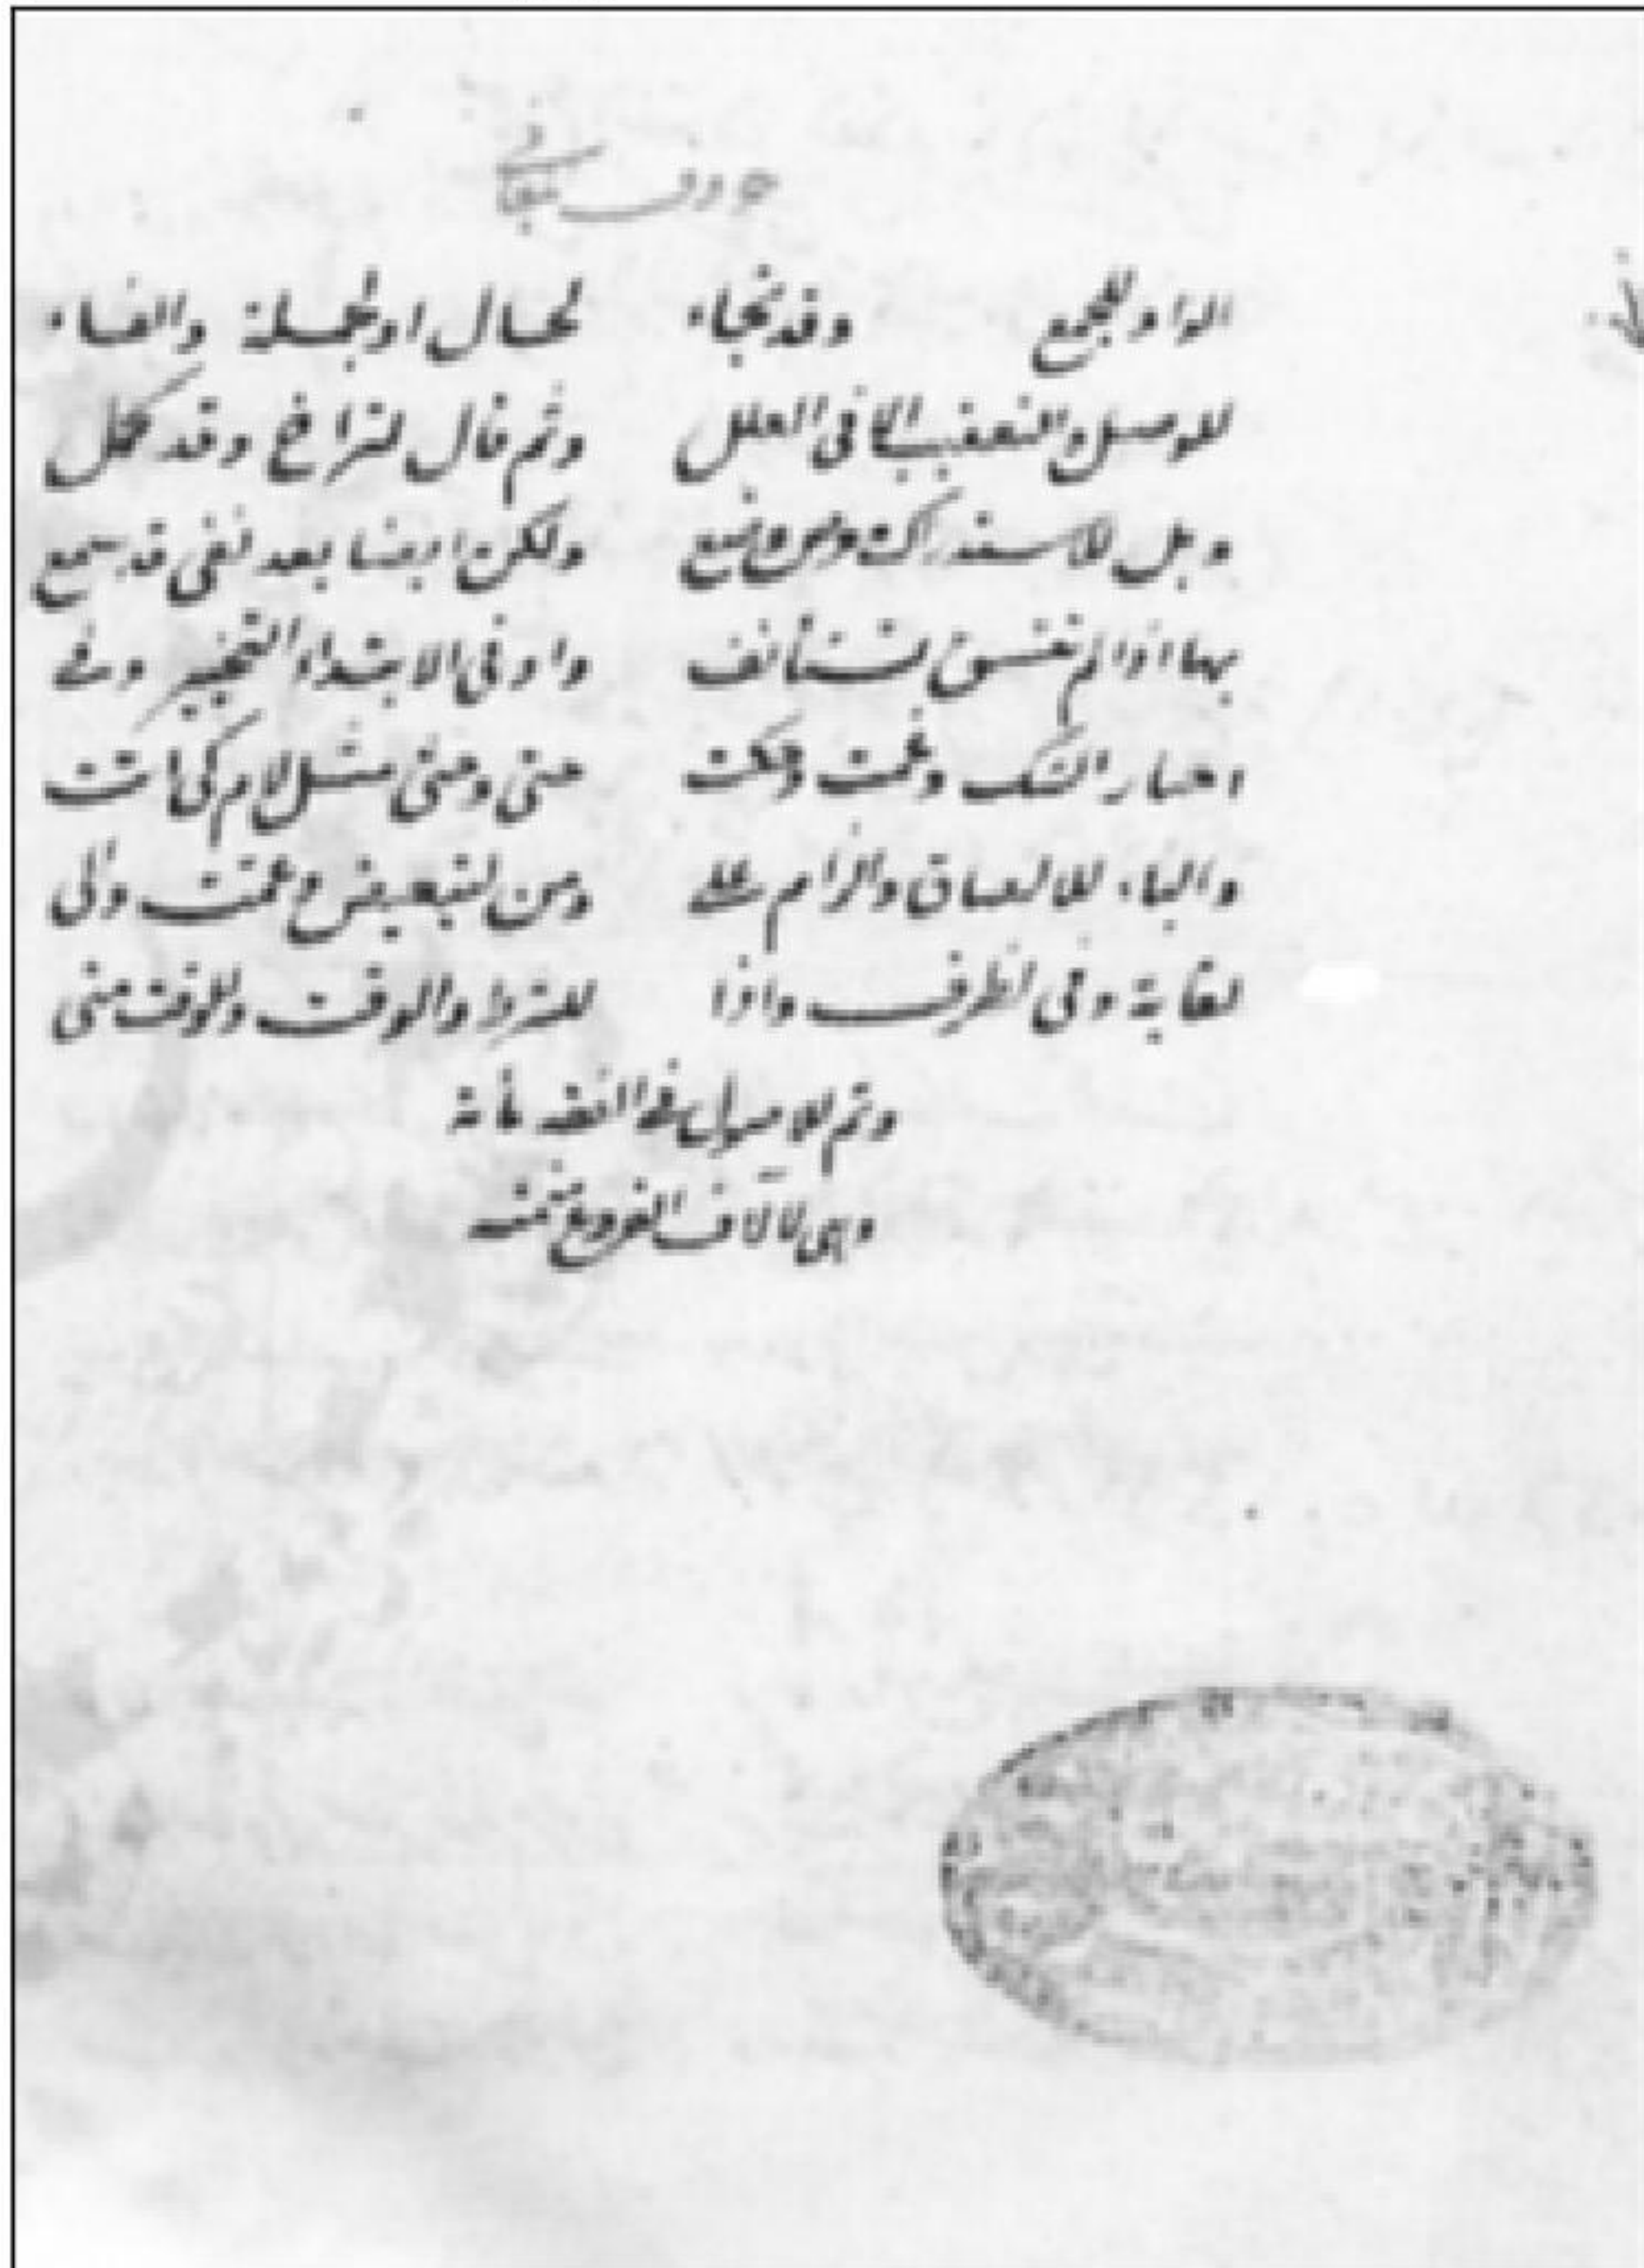 حروف معاني
الواو للجمع وقد تجاء لحال او لجملة والفاء
للوصل والتعقيب الا في العلل وثم قال لتراخ وقد كمل
وبل للاستدراك ومن وضع ولكن ايضا بعد نفي قد سمع
بها اذا لم تنسق تستانف واو في الابتداء التخيير وفي
اخبار الشك وعمت وحكت حتى وحتى مثل لام كي اتت
والباء للالصاق والزام على ومن لتبعيض وعمت والى
لغاية وفي لظرف واذا للشرط والوقت وللوقت متى
وتم للاصول في الفقه مائة
وهي لآلاف الفروع متمنه